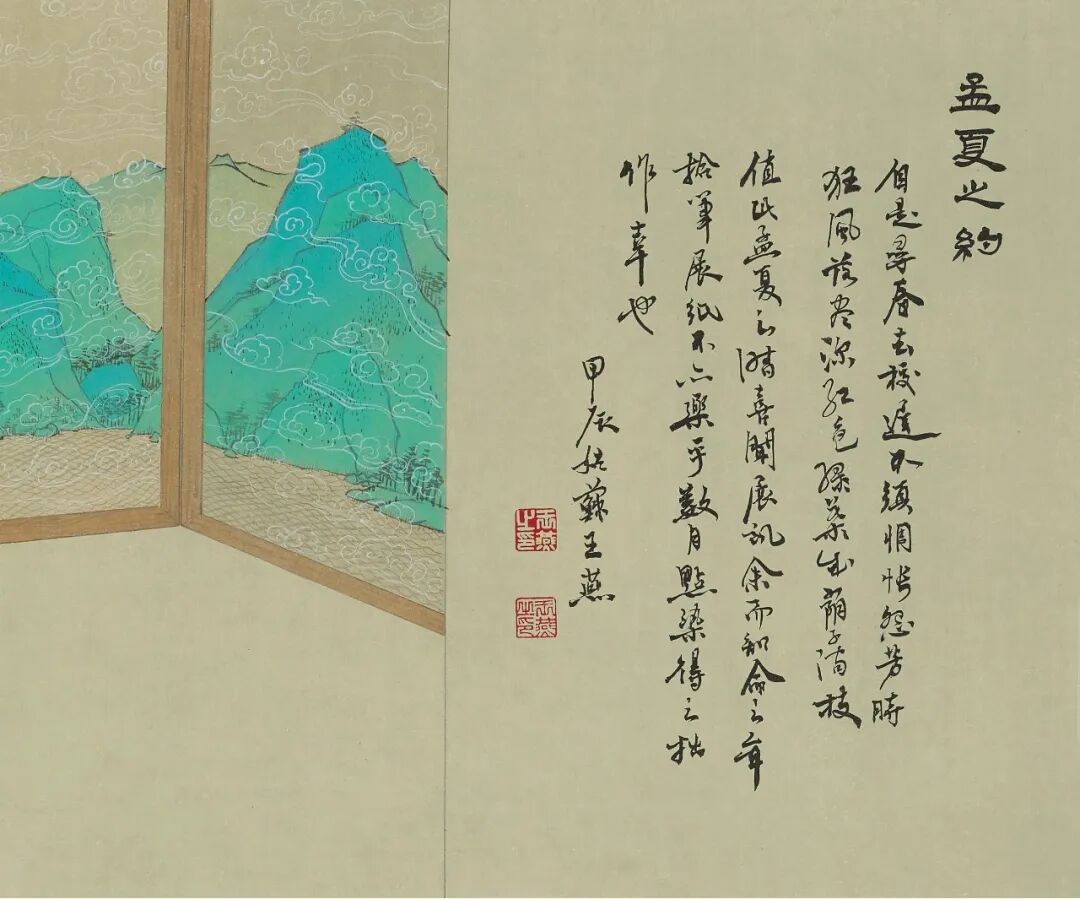 孟夏之約
自是尋春去校遲不須惆悵怨芳時
狂風落盡深紅色綠葉成蔭子滿枝
值此孟夏之喜聞展訊余而知命之年
拾筆展紙不亦樂乎數月點染得之拙
作幸也
甲辰姑蘇王燕
王燕之印
王燕之印